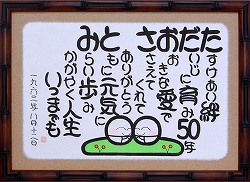 たすけあい絆
だいじに育み50年
おおきな愛で
ささえてくれて
ありがとう
ともに元気に
みらい歩み
かがやく人生
いつまでも
一九六二年八月十二日